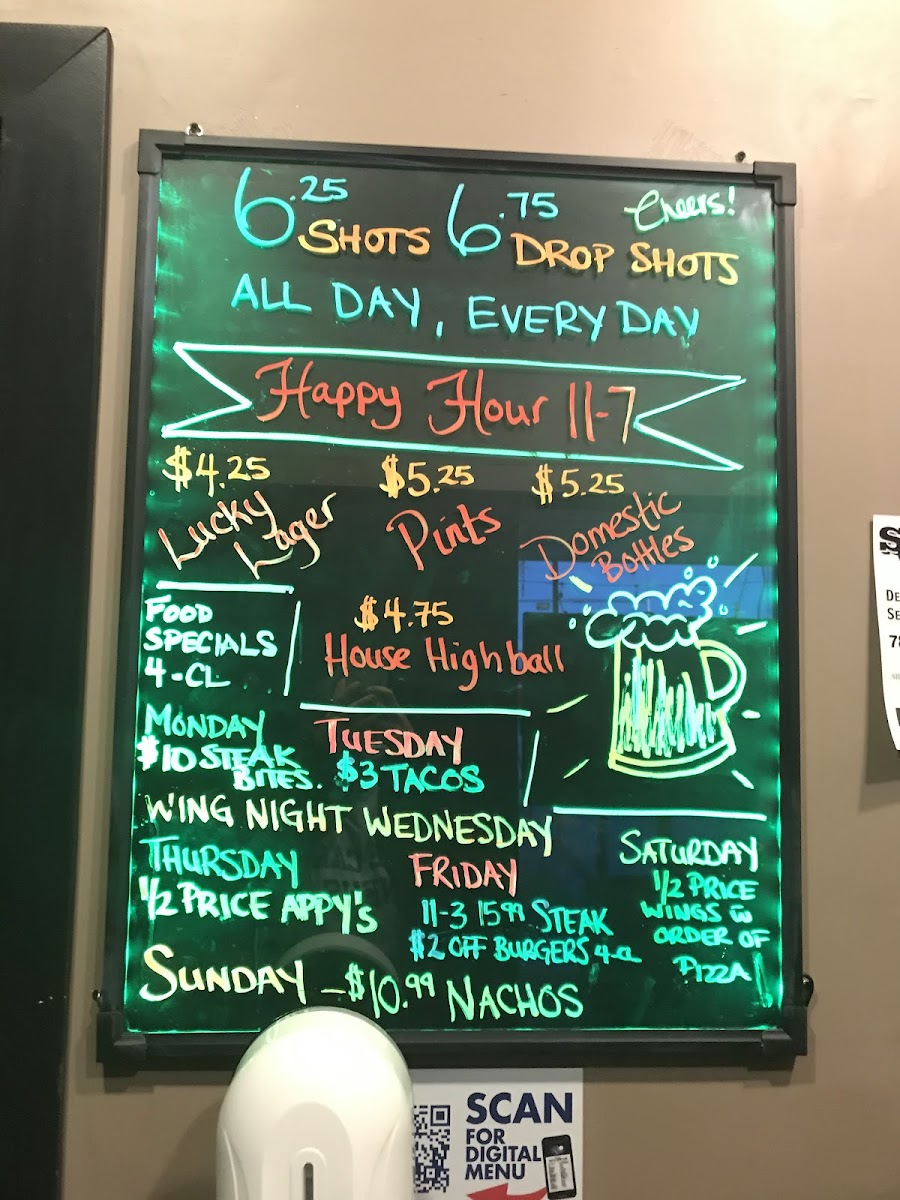 6.25 SHOTS 6.75 DROP SHOTS Cheers!
ALL DAY, EVERY DAY
Happy Hour 11-7
$4.25 Lucky Lager
$5.25 Pints
$5.25 Domestic Bottles
$4.75
House Highball
FOOD
SPECIALS
4-CL
MONDAY
$10 STEAK
BITES.
TUESDAY
$3 TACOS
WING NIGHT WEDNESDAY
THURSDAY
1/2 PRICE APPY'S
FRIDAY
11-3 15.99 STEAK
$2 OFF BURGERS 4-CL
SATURDAY
1/2 PRICE
WINGS w
ORDER OF
PIZZA
SUNDAY - $10.99 NACHOS
SCAN
FOR
DIGITAL
MENU